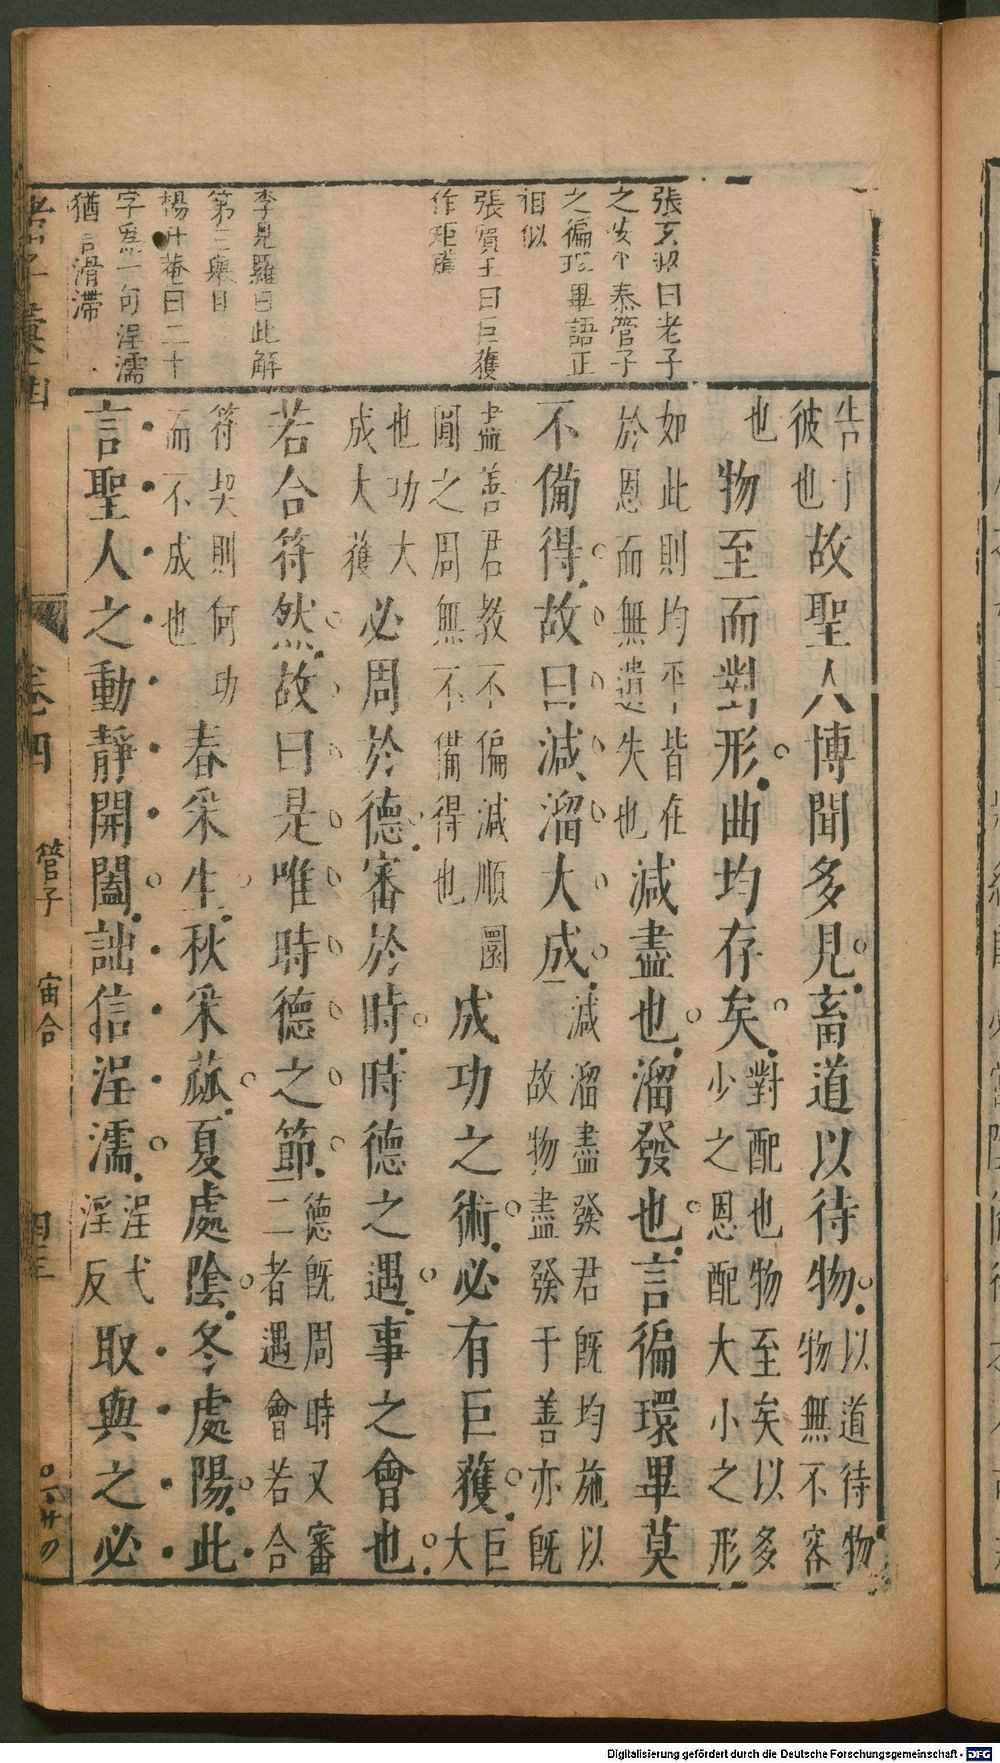 張
曰老子
之
管子
之徧環畢語正
相似
張賓王曰巨獲
作矩矱
李見羅曰此解
第三舉目
楊升菴曰二十
字爲一句浧濡
猶言滑滯
告
彼也
故聖人博聞多見畜道以待物
以道待物
物無不容
也
物至而對形曲均存矣
對配也物至矣以多
少之恩配大小之形
如此則均平皆在
於恩而無遺失也
減盡也溜發也言徧環畢莫
不備得故曰減溜大成
減溜盡發君既均施以
故物盡發于善亦既
盡善君教不偏減順圜
圓之周無不備得也
成功之術必有巨獲
巨
大
也功大
成大獲
必周於德審於時時德之遇事之會也
若合符然故曰是唯時德之節
德既周時又審
二者遇會若合
符契則何功
而不成也
春采生秋采蓏夏處陰冬處陽此
言聖人之動靜開闔詘信浧濡
浧弋
淫反
取與之必
卷四
管子
宙合
四三
Digitalisierung gefördert durch die Deutsche Forschungsgemeinschaft - DFG